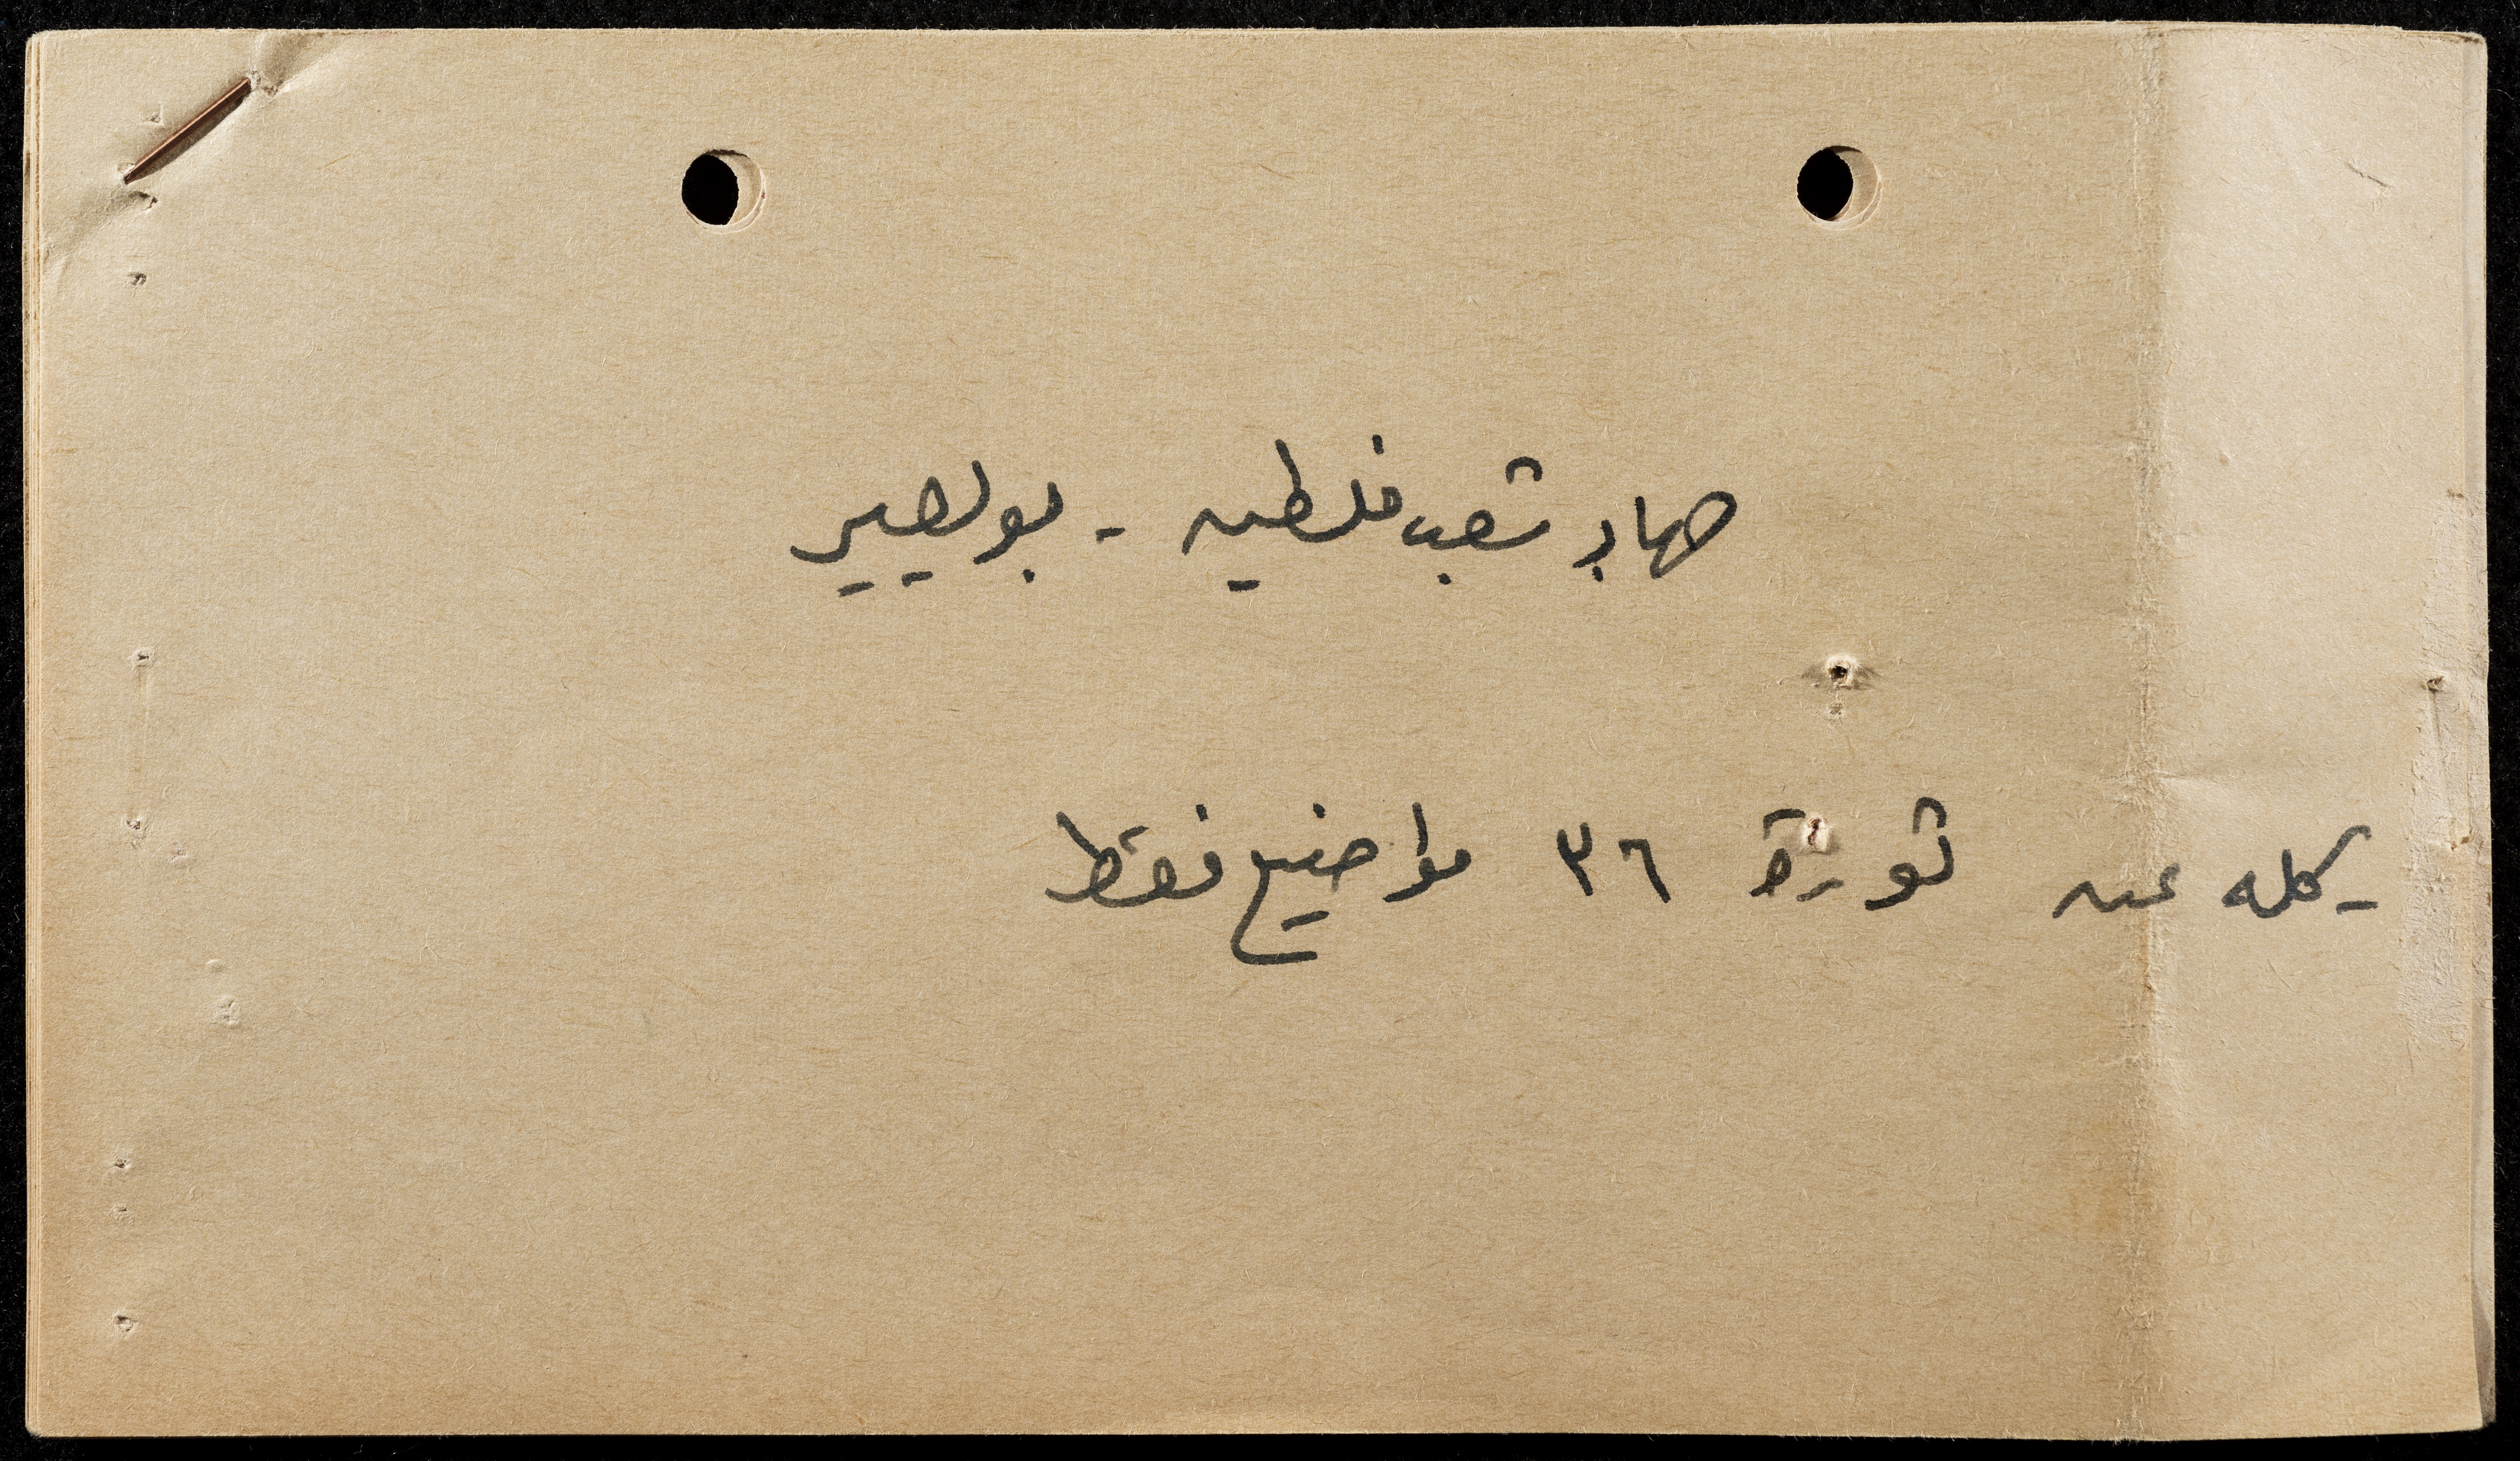 جهاد شعب فلسطين - بويصير
- كله عن ثورة ٣٦ مواضيع فقط